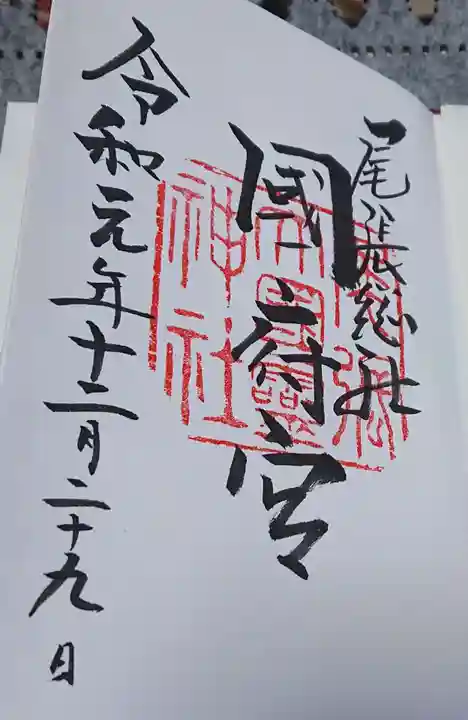 尾張総社
國府宮
令和元年十二月二十九日
神社